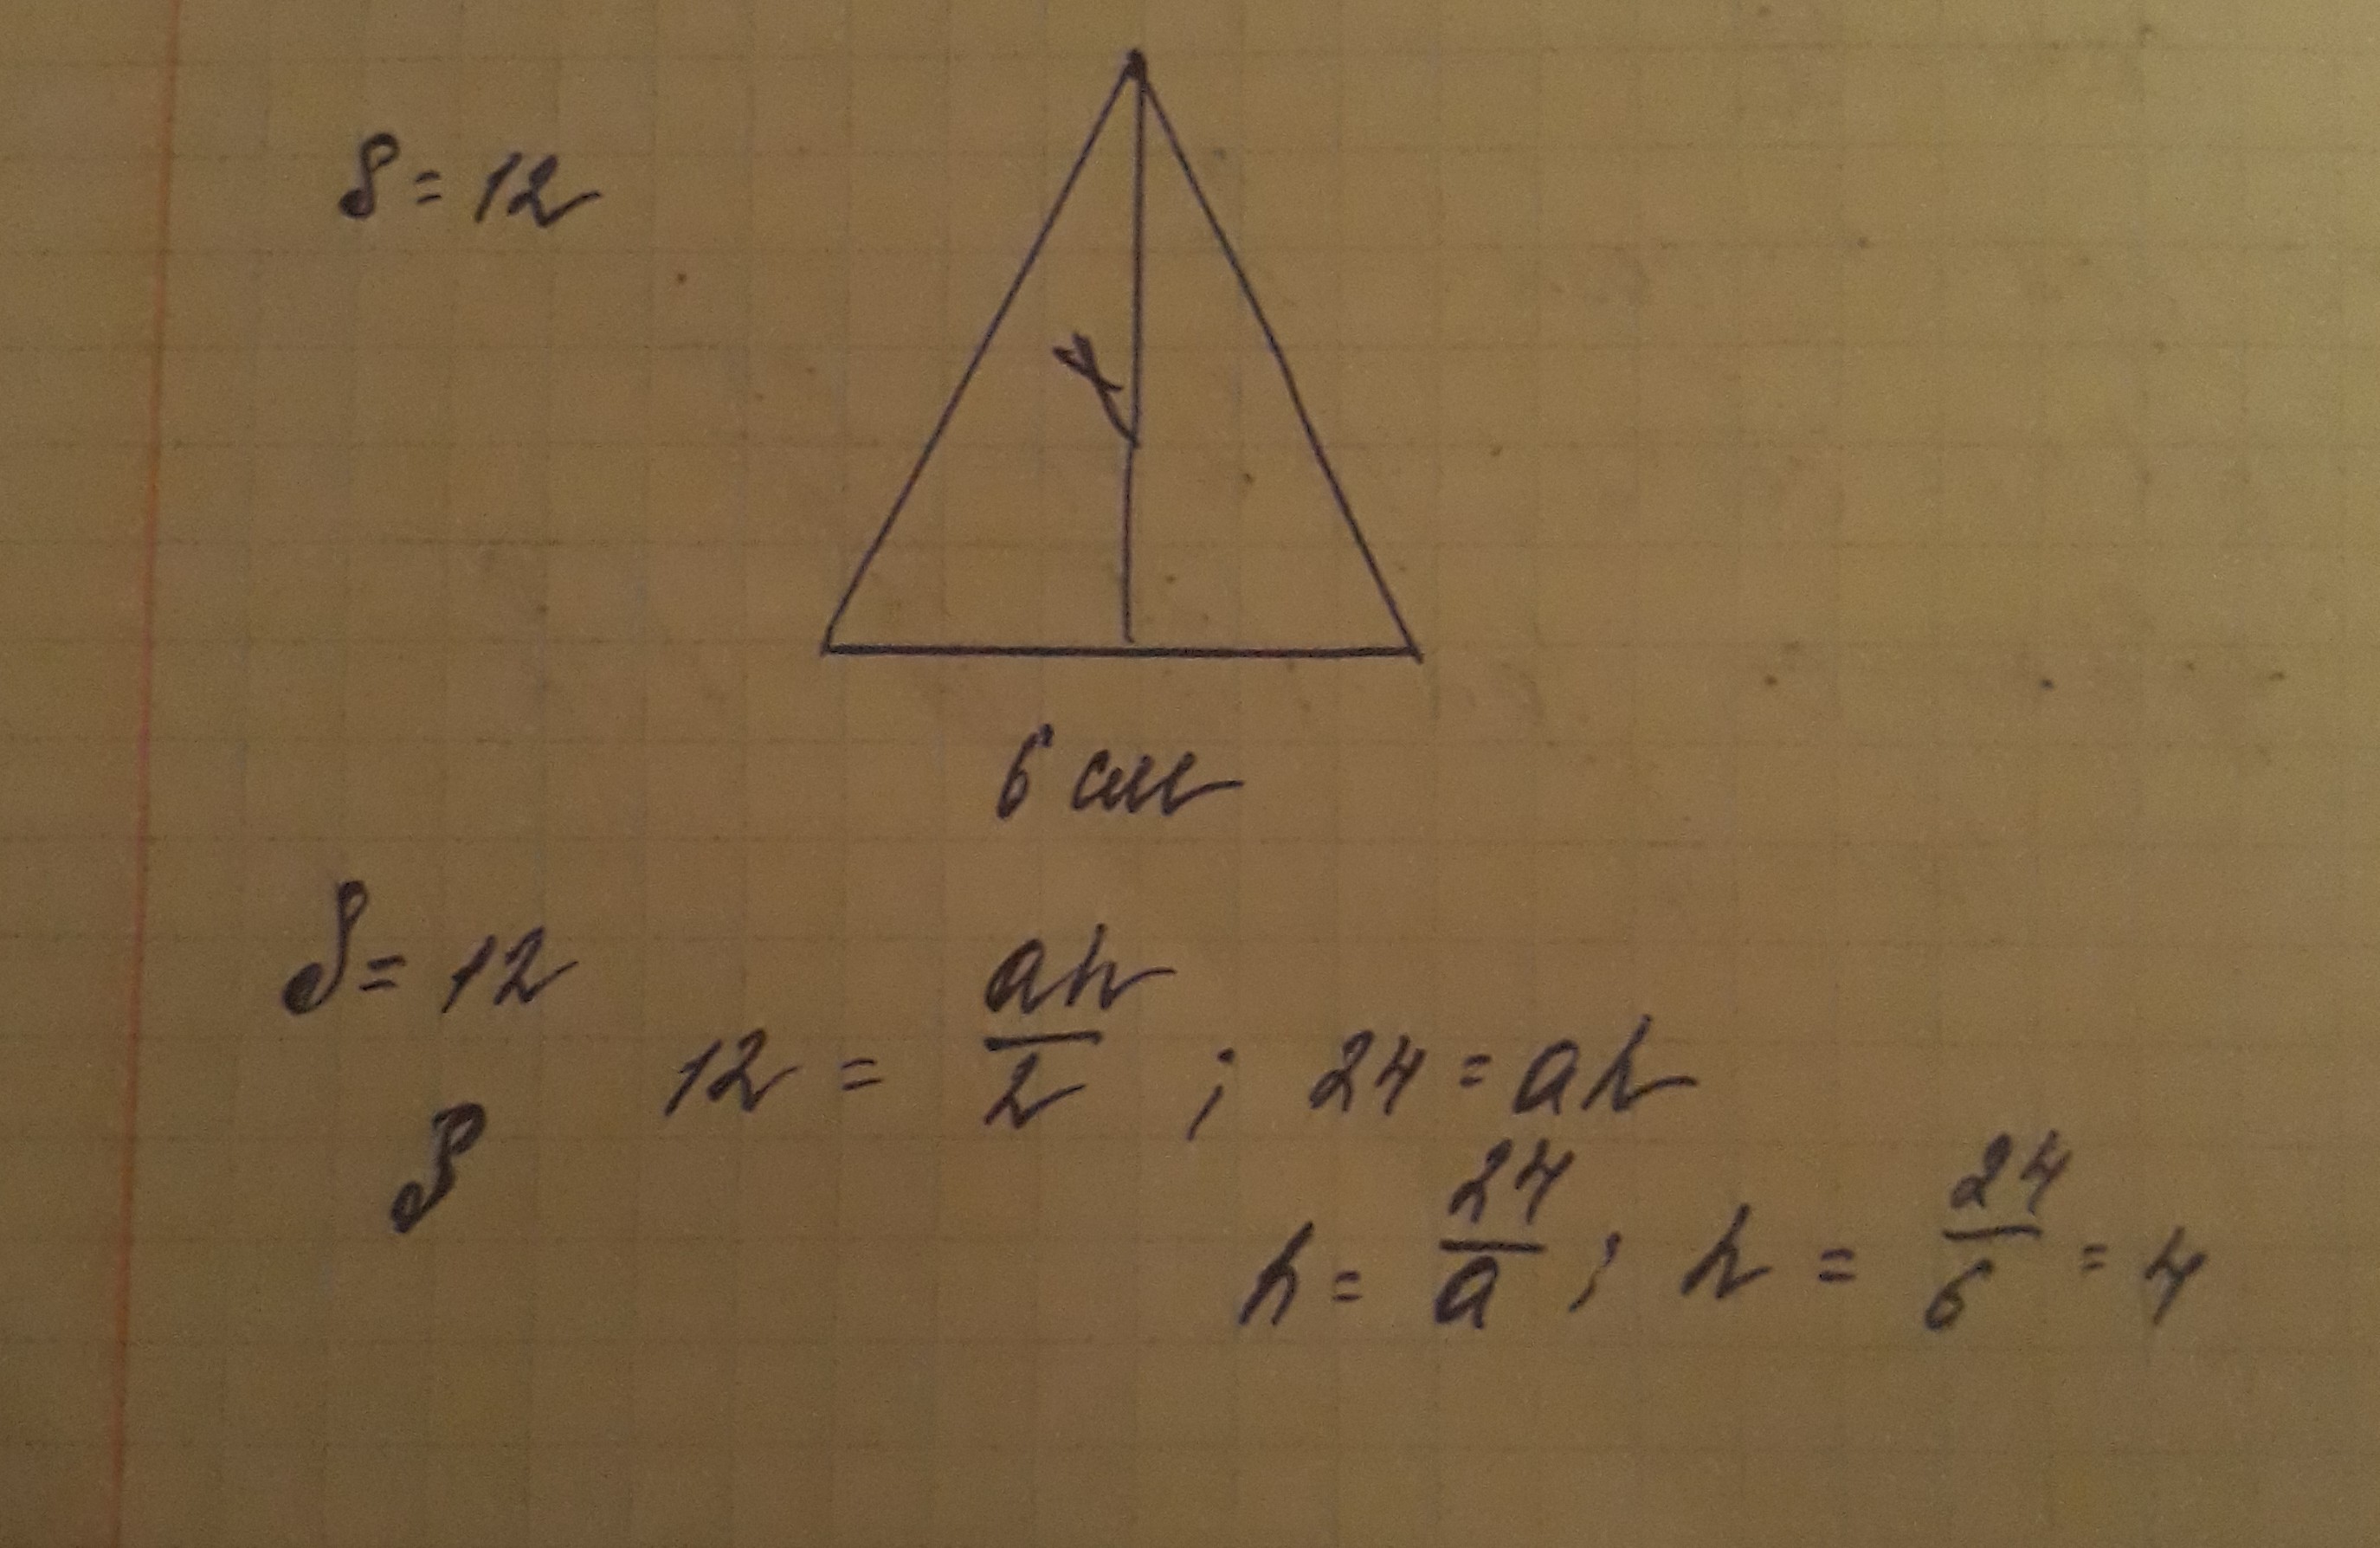 S = 12
6 см
S = 12
12 = ah/2 ; 24 = ah
h = 24/a ; h = 24/6 = 4